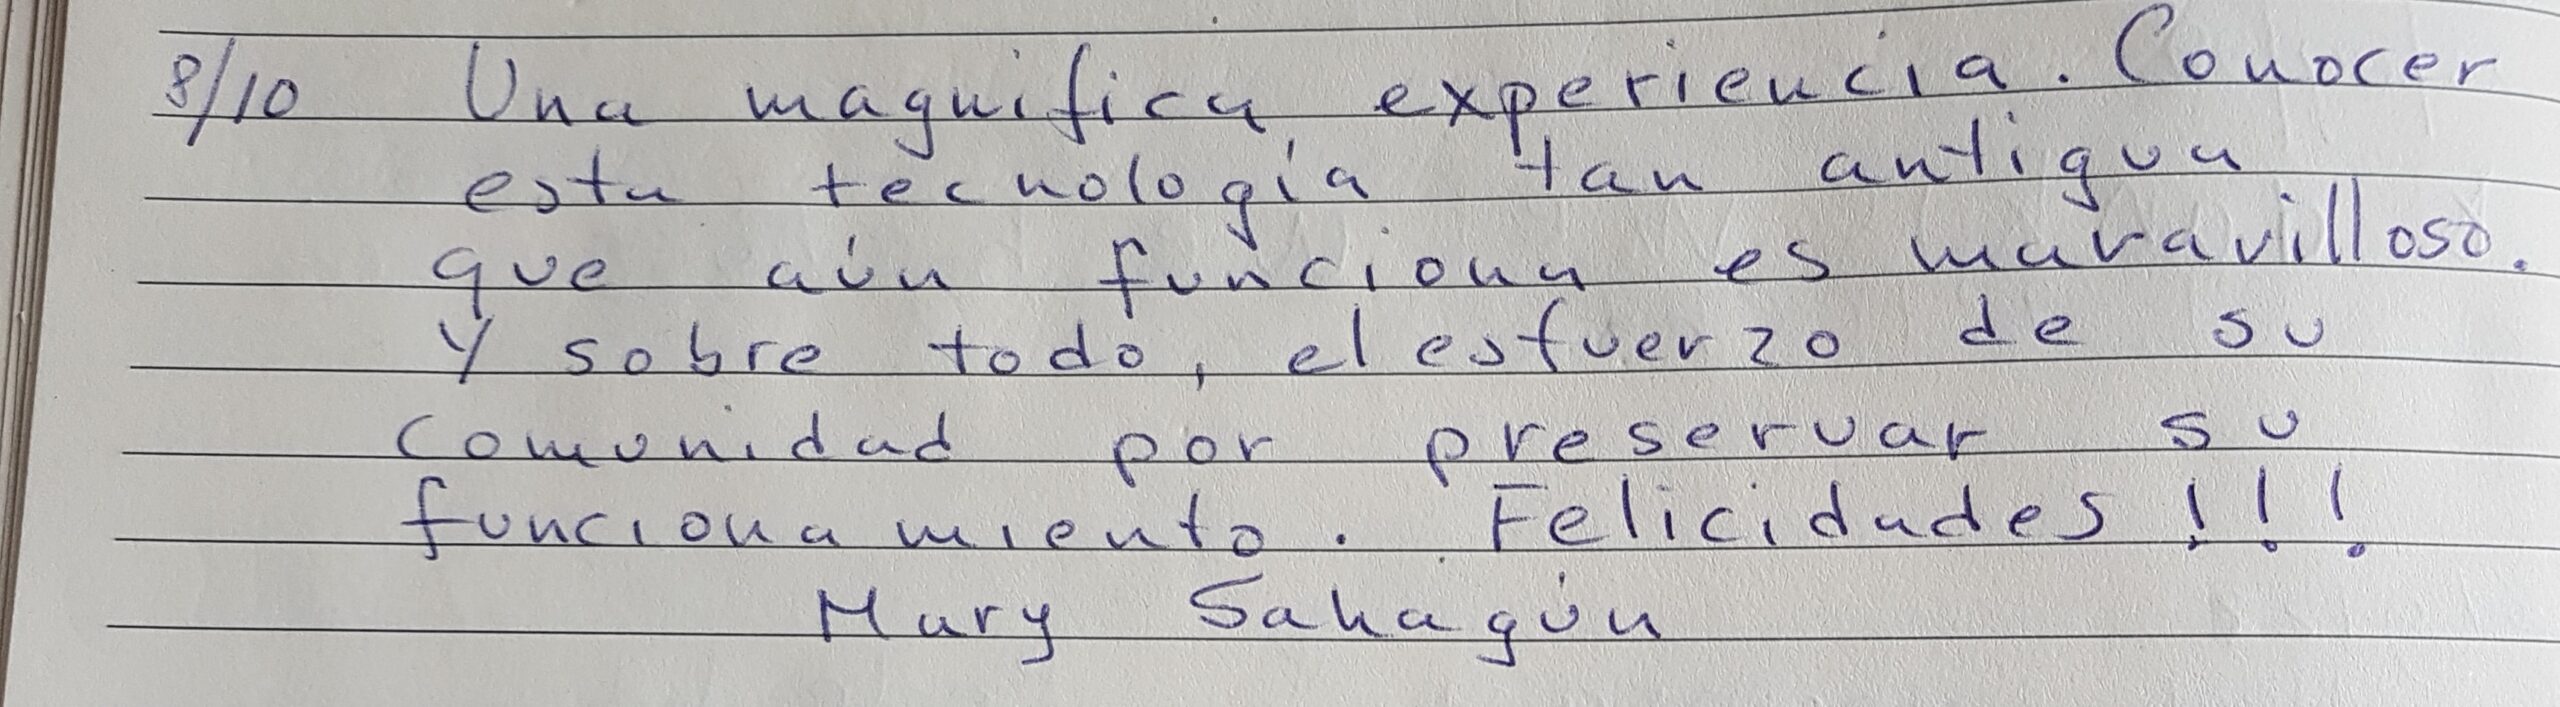 8/10 Una magnifica experiencia. Conocer
esta tecnología tan antigua
que aún funciona es maravilloso.
Y sobre todo, el esfuerzo de su
comunidad por preservar su
funcionamiento. Felicidades!!!
Mary Sahagún